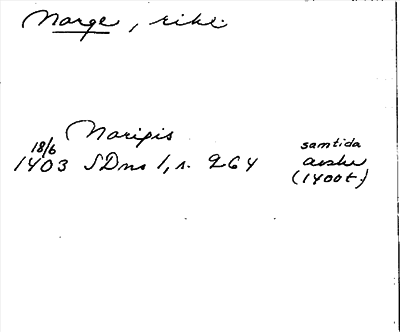 Norge, rike
Noripis
18/6 samtida
1403 SDns 1, s. 264 avskr
(1400t.)